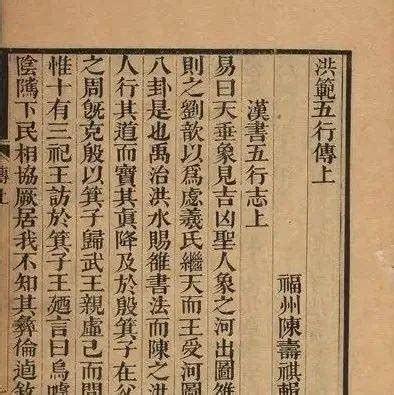 洪範五行傳上
福州陳壽祺輯
漢書五行志上
易曰天垂象見吉凶聖人象之河出圖雒
則之劉歆以爲虙羲氏繼天而王受河圖
八卦是也禹治洪水賜雒書法而陳之洪
人行其道而寶其眞降及於殷箕子在父
之周旣克殷以箕子歸武王親虛己而問
惟十有三祀王訪於箕子王廼言曰烏嘑
陰隲下民相協厥居我不知其彝倫逌敘